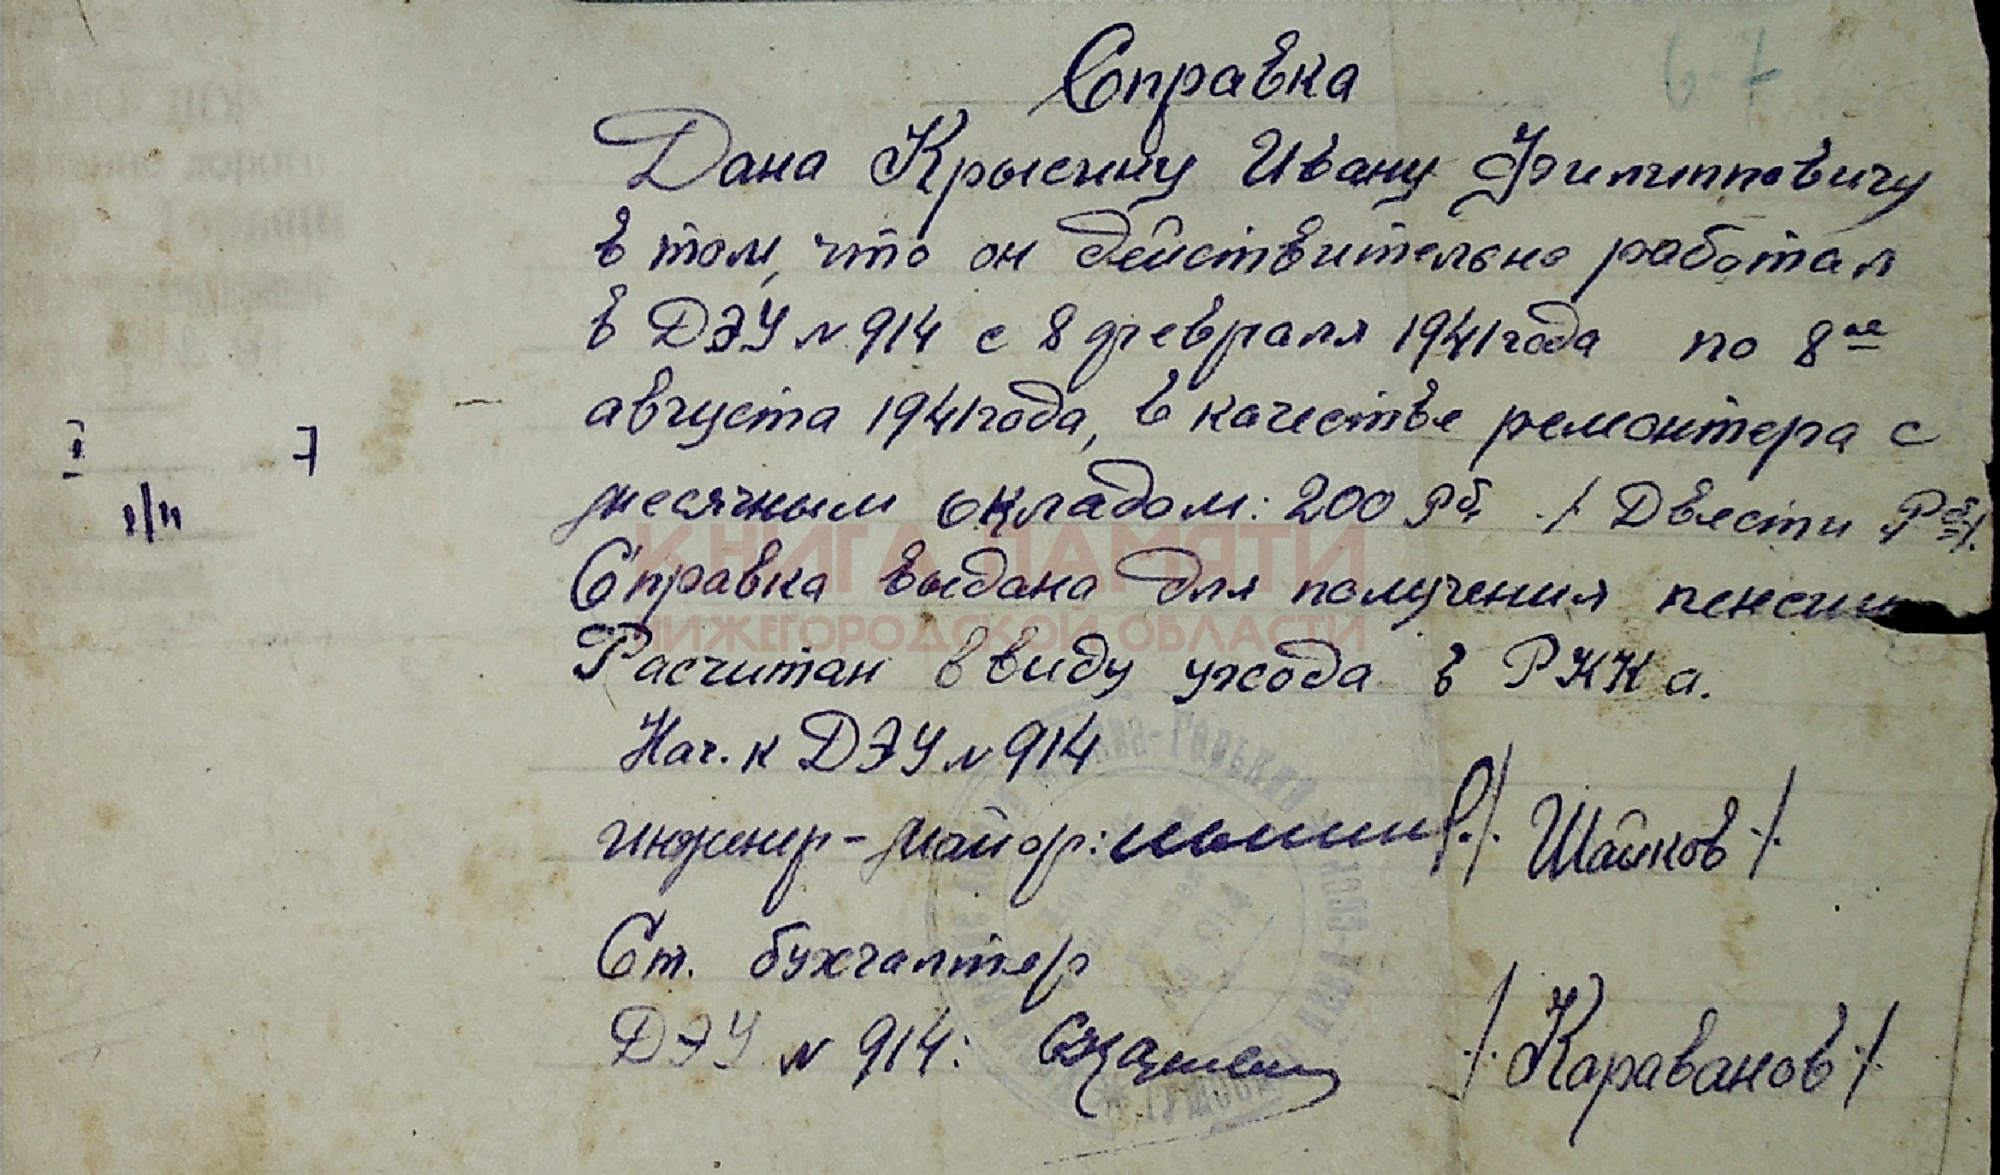 6-7
Справка
Дана Крысину Ивану Филипповичу
в том, что он действительно работал
в ДЭУ № 914 с 8 февраля 1941 года по 8ое
августа 1941 года, в качестве ремонтера с
I 7
месячным окладом: 200 Рб. /. Двести Рб./.
Справка выдана для получения пенсии
КНИГА ПАМЯТИ
НИЖЕГОРОДСКОЙ ОБЛАСТИ
Расчитан ввиду ухода в РККа.
Нач.к ДЭУ № 914
инженер-майор: /. Шайков ./.
Ст. бухгалтер
ДЭУ № 914: /. Караванов ./.